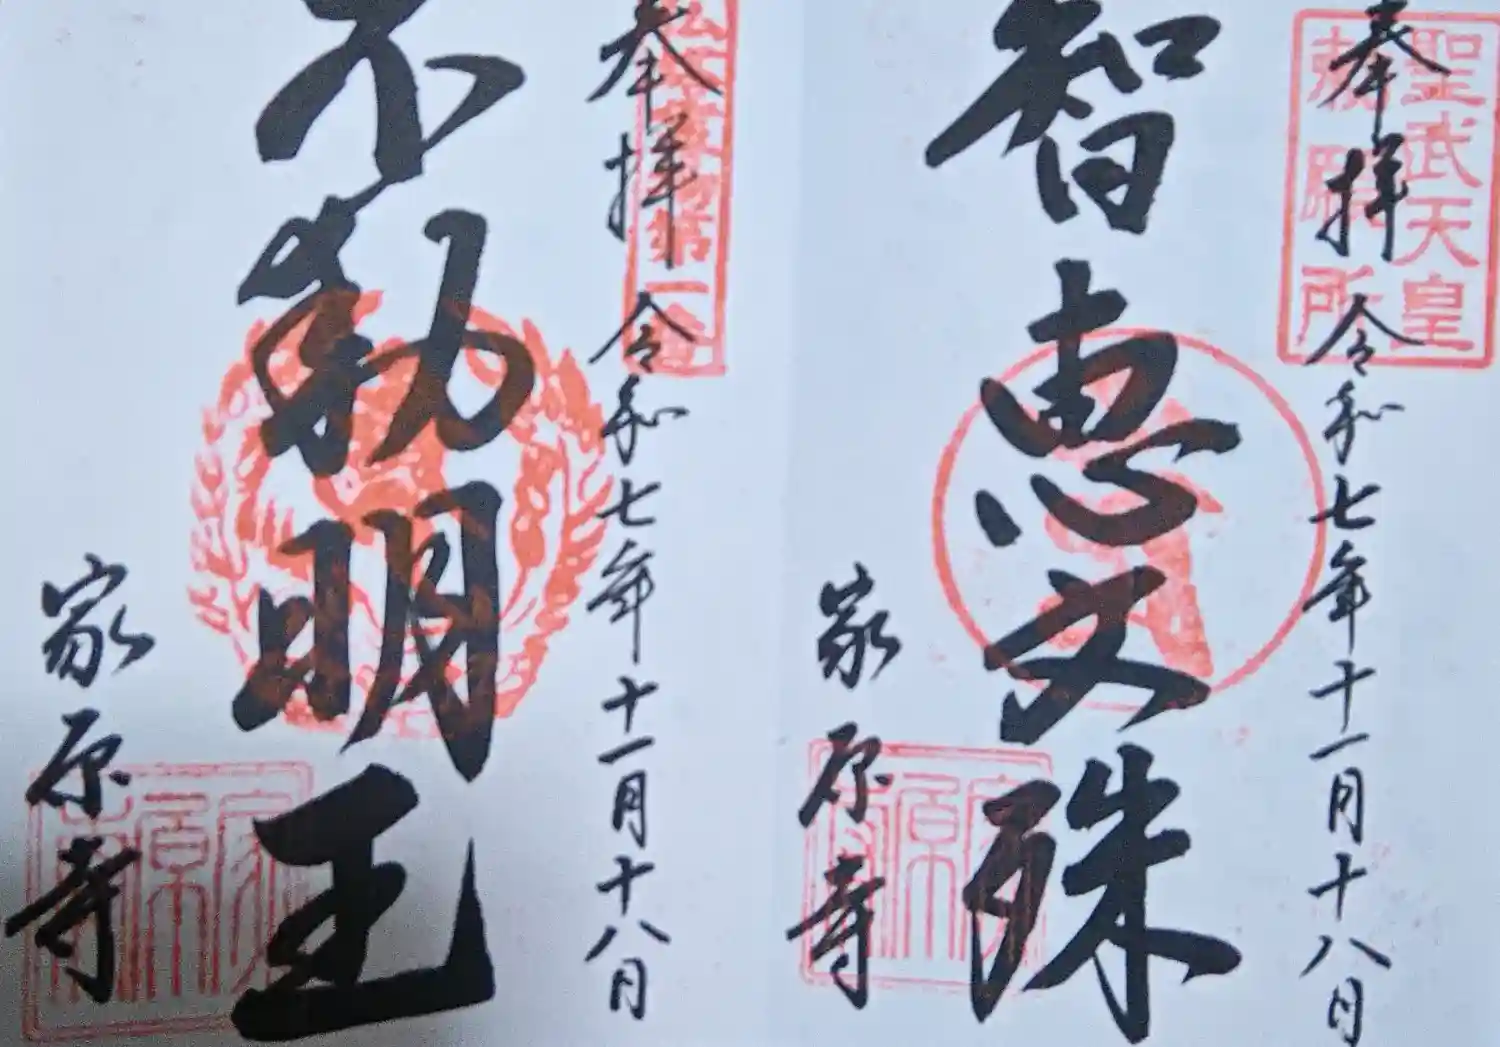 聖武天皇
勅願所
奉拝 令和七年十一月十八日
智恵文殊
家原寺
家原寺
奉拝 令和七年十一月十八日
不動明王
家原寺
家原寺